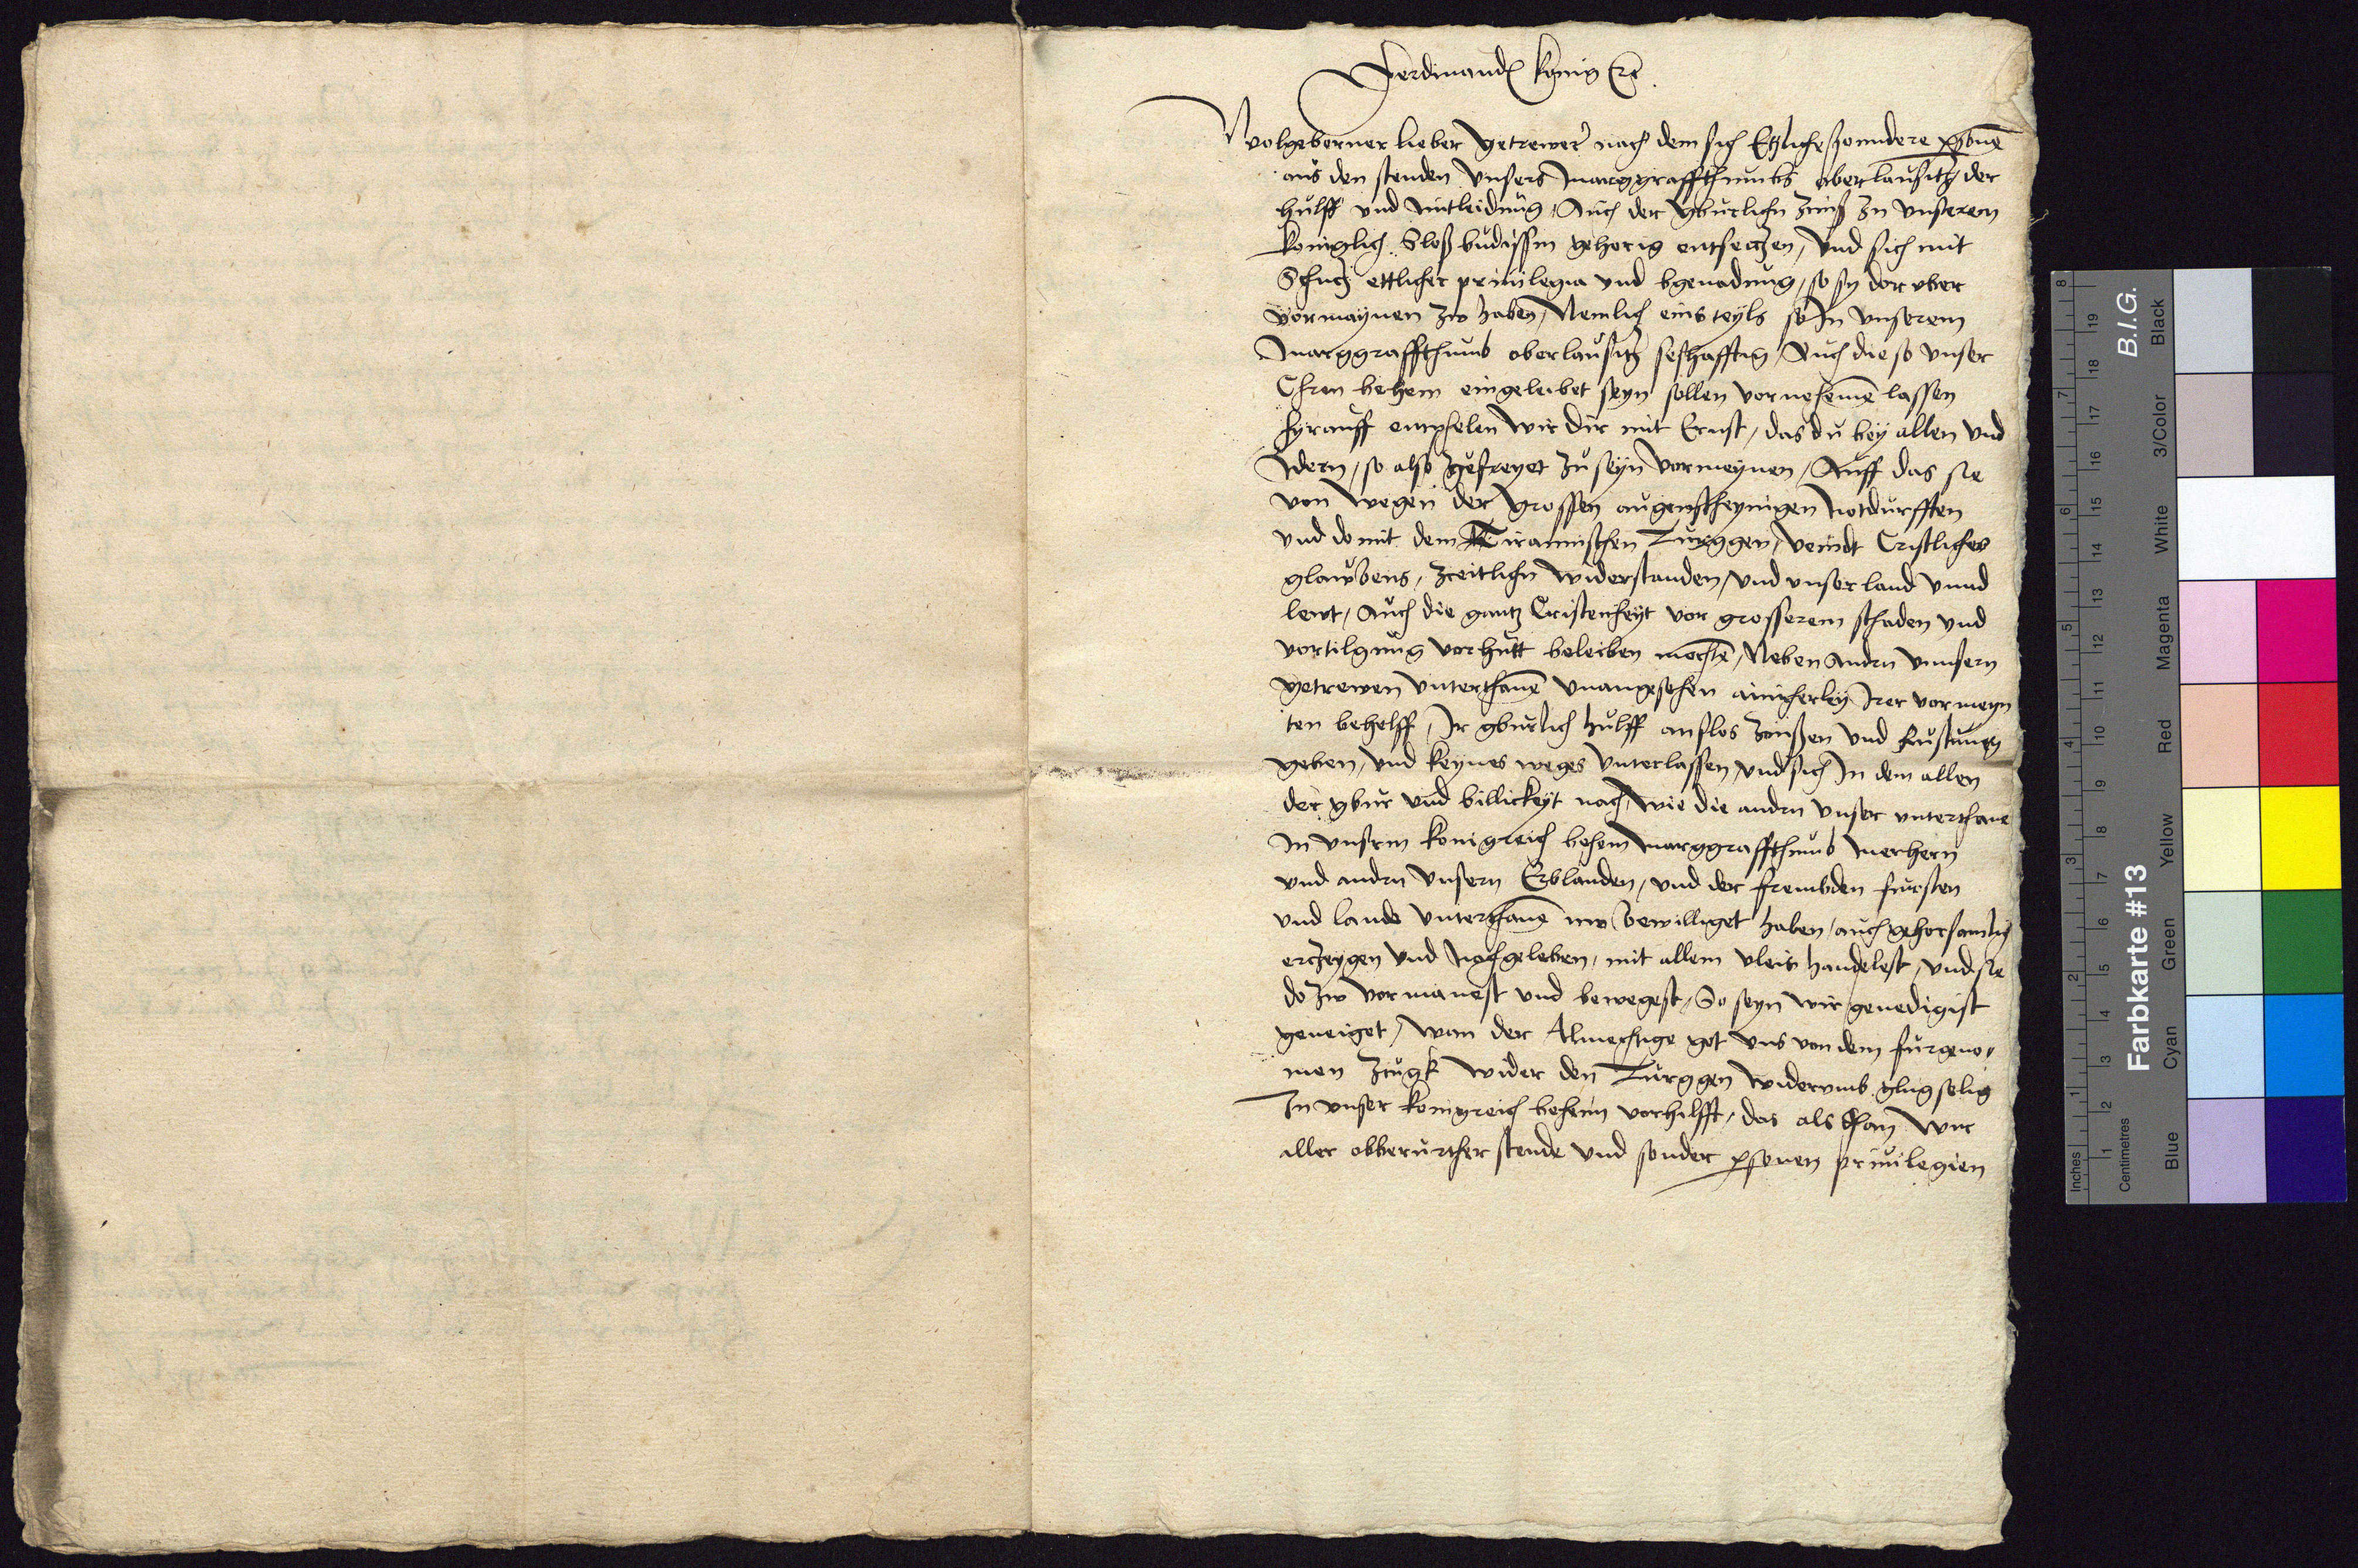 Ferdinand könig etc.
Wolgeborner lieber getrewer nach dem sich Etzliche sonndere personen
aus den stenden unsers Marggraffthumbs oberlausitz, der
hulff und mitleidung, Auch der gburlichn zinß zu unserem
koniglich Sloß budissin gehorig entseczen, und sich mit
Schucz ettlicher priuilegia und bgenadung, so sy dor uber
vormaynen zw haben, Nemlich eins teyls so In unserem
Marggraffthumb oberlausitz seßhafftig, Auch die so unser
Chron behem eingeleibet seyn sollen vornehemen lassen
hyrauff empfelen wir dir mit Ernst, das du bey allen und
Idern, so also gefreyet zu seyn vormeynen, Auff das sie
von wegen der grossen augenscheynigen notdurfften
und do mit dem Tirannischen Turggen, veindt Cristliches
glawbens, zceitlichn widerstanden, und unser land unnd
lewt, Auch die gantz Cristenheyt vor grosserem schaden und
vortilgung vorhutt beleiben mochten, Neben andrn unnsern
getrewen unterthanen unangesehen ainicherley Irer vormeyn
ten behelff, Ir gburlich hulff anslos zcinßen und Rustung
geben, und keynes weges unterlassen, und sich In dem allen
der gbur und billickeyt nach, wie die andrn unser unterthane
In unsrm konigreich behem Marggraffthumb Merhern
und andrn unsern Erblanden, und der frembden fursten
und lande unterthanen nw bewilliget haben, auch gehorsamlich
erczeygen und nochgeleben, mit allem vleis handelest, und sie
do zw vormanest und bewegest, So seyn wir genedigist
geneiget, wan der Almechtige got uns von dem furgeno,
men zcugk wider den Turggen widerumb glugselig
In unser konigreich behem vorhilfft, das als dan wir
aller obberurther stende und sonder personen priuilegien
Farbkarte #13
B.I.G.
Inches
1 2 3 4 5 6 7 8
Centimetres
1 2 3 4 5 6 7 8 9 10 11 12 13 14 15 16 17 18 19
Blue
Cyan
Green
Yellow
Red
Magenta
White
3/Color
Black